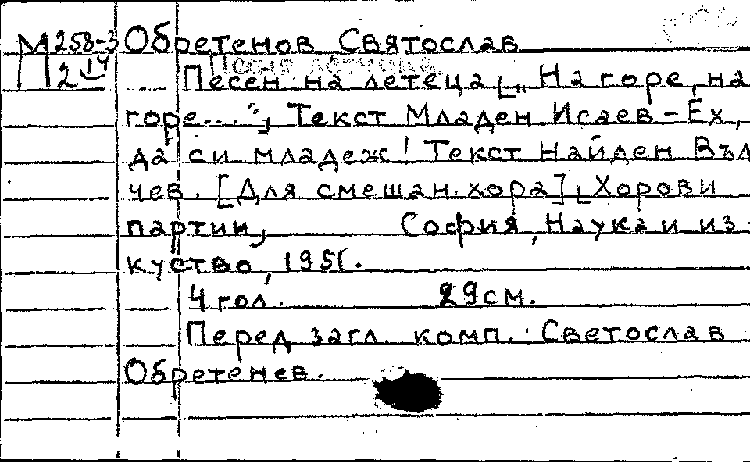 М258-3 Обретенов Святослав
П2 IV
Песен на летеца[„Нагоре, на
горе...“], Текст Младен Исаев - Ех,
да си младеж! Текст Найден Въл
чев. [Для смешан. хора][Хорови
партии], София, Наука и из
куство, 1951.
4 гол. 29 см.
Перед загл. комп.: Светослав
Обретенев.